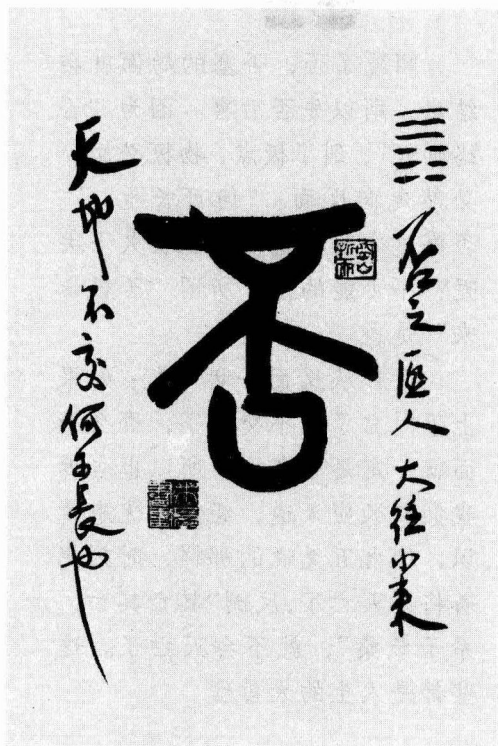 ䷋ 否之匪人 大往小来
否
天地不交何可長也